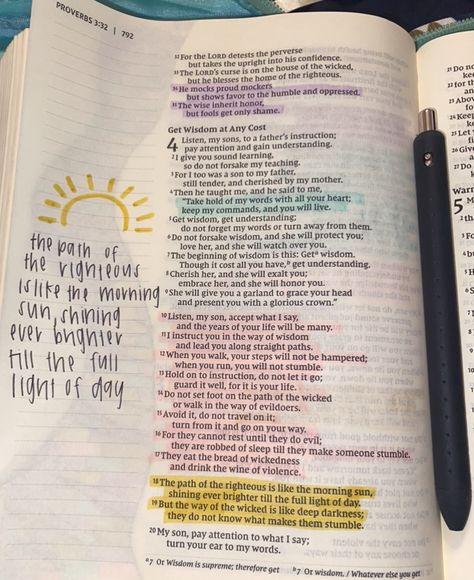 PROVERBS 3:32 | 792
32 For the LORD detests the perverse
but takes the upright into his confidence.
33 The LORD's curse is on the house of the wicked,
but he blesses the home of the righteous.
34 He mocks proud mockers
but shows favor to the humble and oppressed.
35 The wise inherit honor,
but fools get only shame.
Get Wisdom at Any Cost
4 Listen, my sons, to a father's instruction;
pay attention and gain understanding.
2 I give you sound learning,
so do not forsake my teaching.
3 For I too was a son to my father,
still tender, and cherished by my mother.
4 Then he taught me, and he said to me,
"Take hold of my words with all your heart;
keep my commands, and you will live.
5 Get wisdom, get understanding;
do not forget my words or turn away from them.
6 Do not forsake wisdom, and she will protect you;
love her, and she will watch over you.
7 The beginning of wisdom is this: Get a wisdom.
Though it cost all you have, b get understanding.
8 Cherish her, and she will exalt you;
embrace her, and she will honor you.
9 She will give you a garland to grace your head
and present you with a glorious crown."
10 Listen, my son, accept what I say,
and the years of your life will be many.
11 I instruct you in the way of wisdom
and lead you along straight paths.
12 When you walk, your steps will not be hampered;
when you run, you will not stumble.
13 Hold on to instruction, do not let it go;
guard it well, for it is your life.
14 Do not set foot on the path of the wicked
or walk in the way of evildoers.
15 Avoid it, do not travel on it;
turn from it and go on your way.
16 For they cannot rest until they do evil;
they are robbed of sleep till they make someone stumble.
17 They eat the bread of wickedness
and drink the wine of violence.
18 The path of the righteous is like the morning sun,
shining ever brighter till the full light of day.
19 But the way of the wicked is like deep darkness;
they do not know what makes them stumble.
20 My son, pay attention to what I say;
turn your ear to my words.
a 7 Or Wisdom is supreme; therefore get b 7 Or wisdom. / Whatever else you get
the path of
the righteous
is like the morning
sun, shining
ever brighter
till the full
light of day